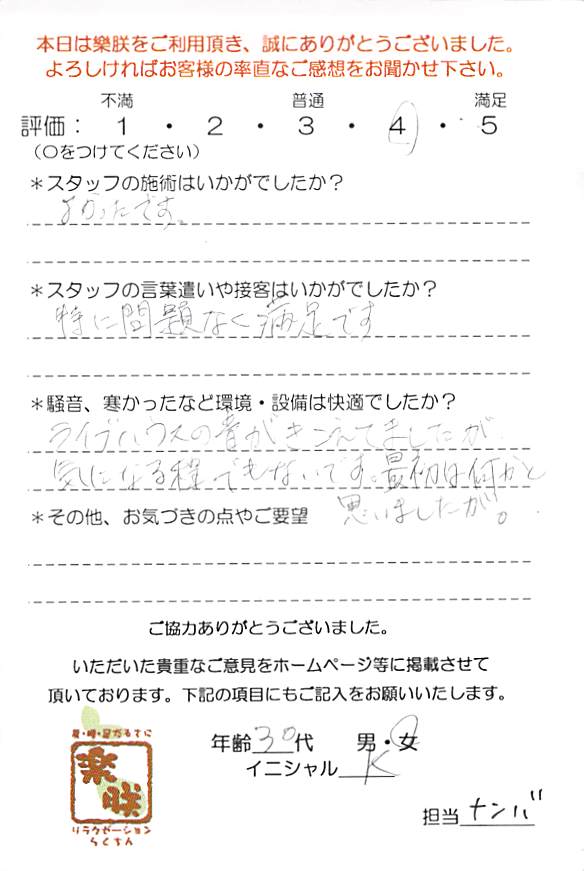 本日は樂朕をご利用頂き、誠にありがとうございました。
よろしければお客様の率直なご感想をお聞かせ下さい。
不満 普通 満足
評価： 1 ・ 2 ・ 3 ・ 4 ・ 5
（〇をつけてください）
＊スタッフの施術はいかがでしたか？
よかったです。
＊スタッフの言葉遣いや接客はいかがでしたか？
特に問題なく満足です
＊騒音、寒かったなど環境・設備は快適でしたか？
ライブハウスの音がきこえてましたが
気になる程でもないです。最初は何かと
思いましたが。
＊その他、お気づきの点やご要望
ご協力ありがとうございました。
いただいた貴重なご意見をホームページ等に掲載させて
頂いております。下記の項目にもご記入をお願いいたします。
年齢30代 男・女
イニシャル K
樂朕
リラクゼーション
らくちん
担当 ナンバ